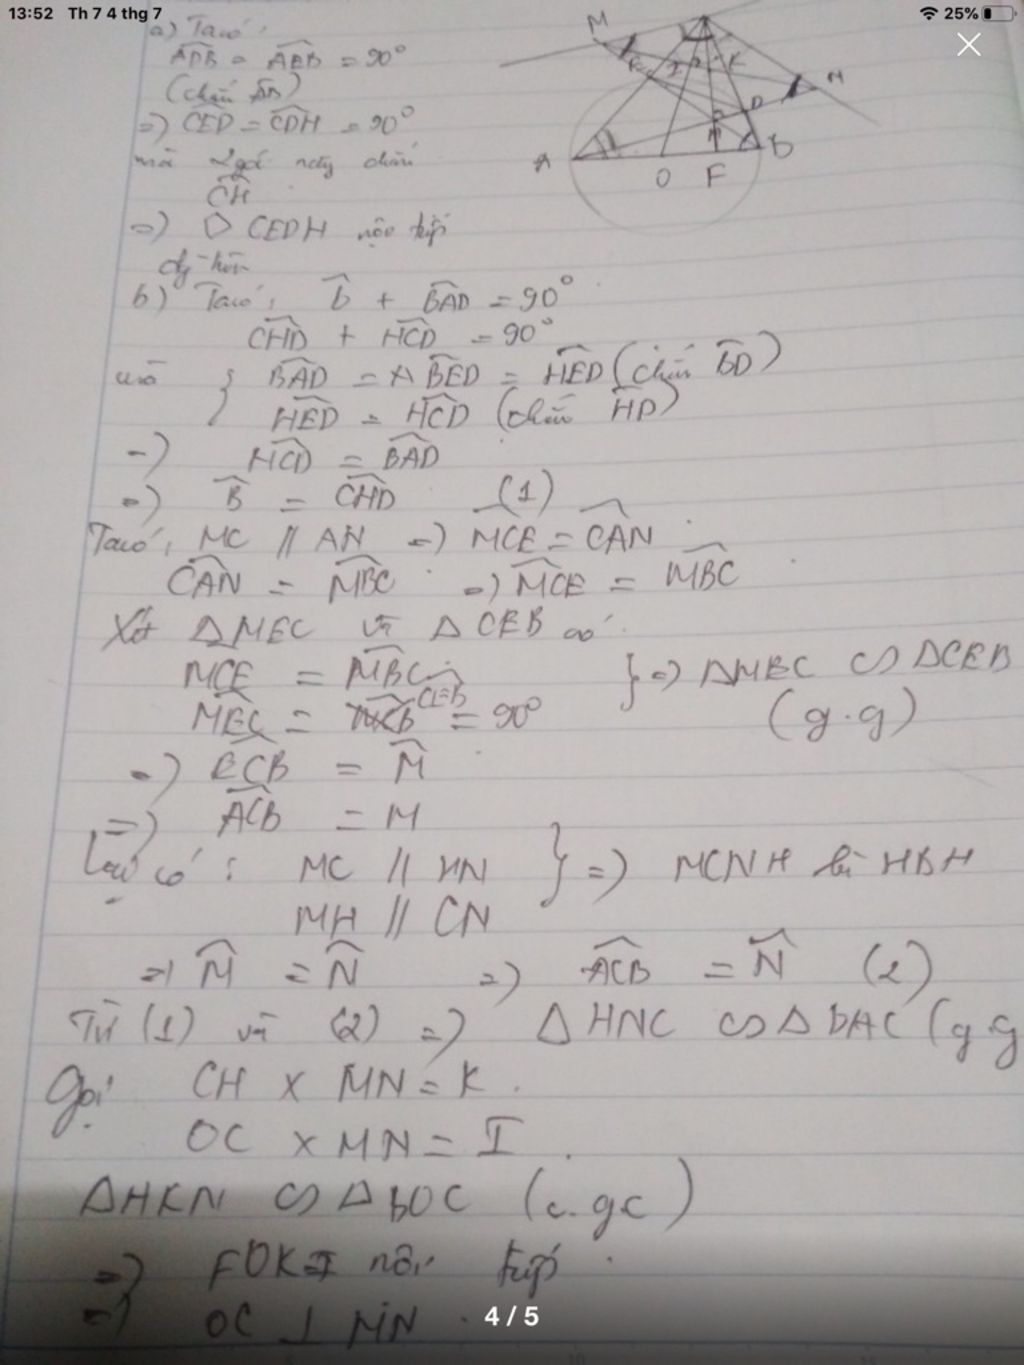 13:52 Th 7 4 thg 7
25%
a) Ta có:
ADB = AEB = 90°
(chắn AB)
=) CED = CDH = 90°
mà 2 góc này chắn
CH
=) CEDH nội tiếp
đg tròn
b) Ta có: b + BAD = 90°
CHD + HCD = 90°
mà { BAD = BED = HED (chắn BD)
HED = HCD (chắn HD)
=) HCD = BAD
=) B = CHD (1)
Ta có: MC // AN =) MCE = CAN
CAN = MBC =) MCE = MBC
Xét ΔMEC và ΔCEB có:
MCE = MBC
MEC = CEB = 90°
} =) ΔMBC ∽ ΔCEB
(g.g)
=) ECB = M
=) ACB = M
Lại có: MC // HN
MH // CN
} =) MCNH là HBH
=) M = N =) ACB = N (2)
Từ (1) và (2) =) ΔHNC ∽ ΔBAC (g.g
Gọi CH x MN = K.
OC x MN = I.
ΔHKN ∽ ΔBOC (c.gc)
=) FOKI nội tiếp.
=) OC ⊥ MN.
4 / 5
M
K
N
E
I
D
H
A
O
F
B